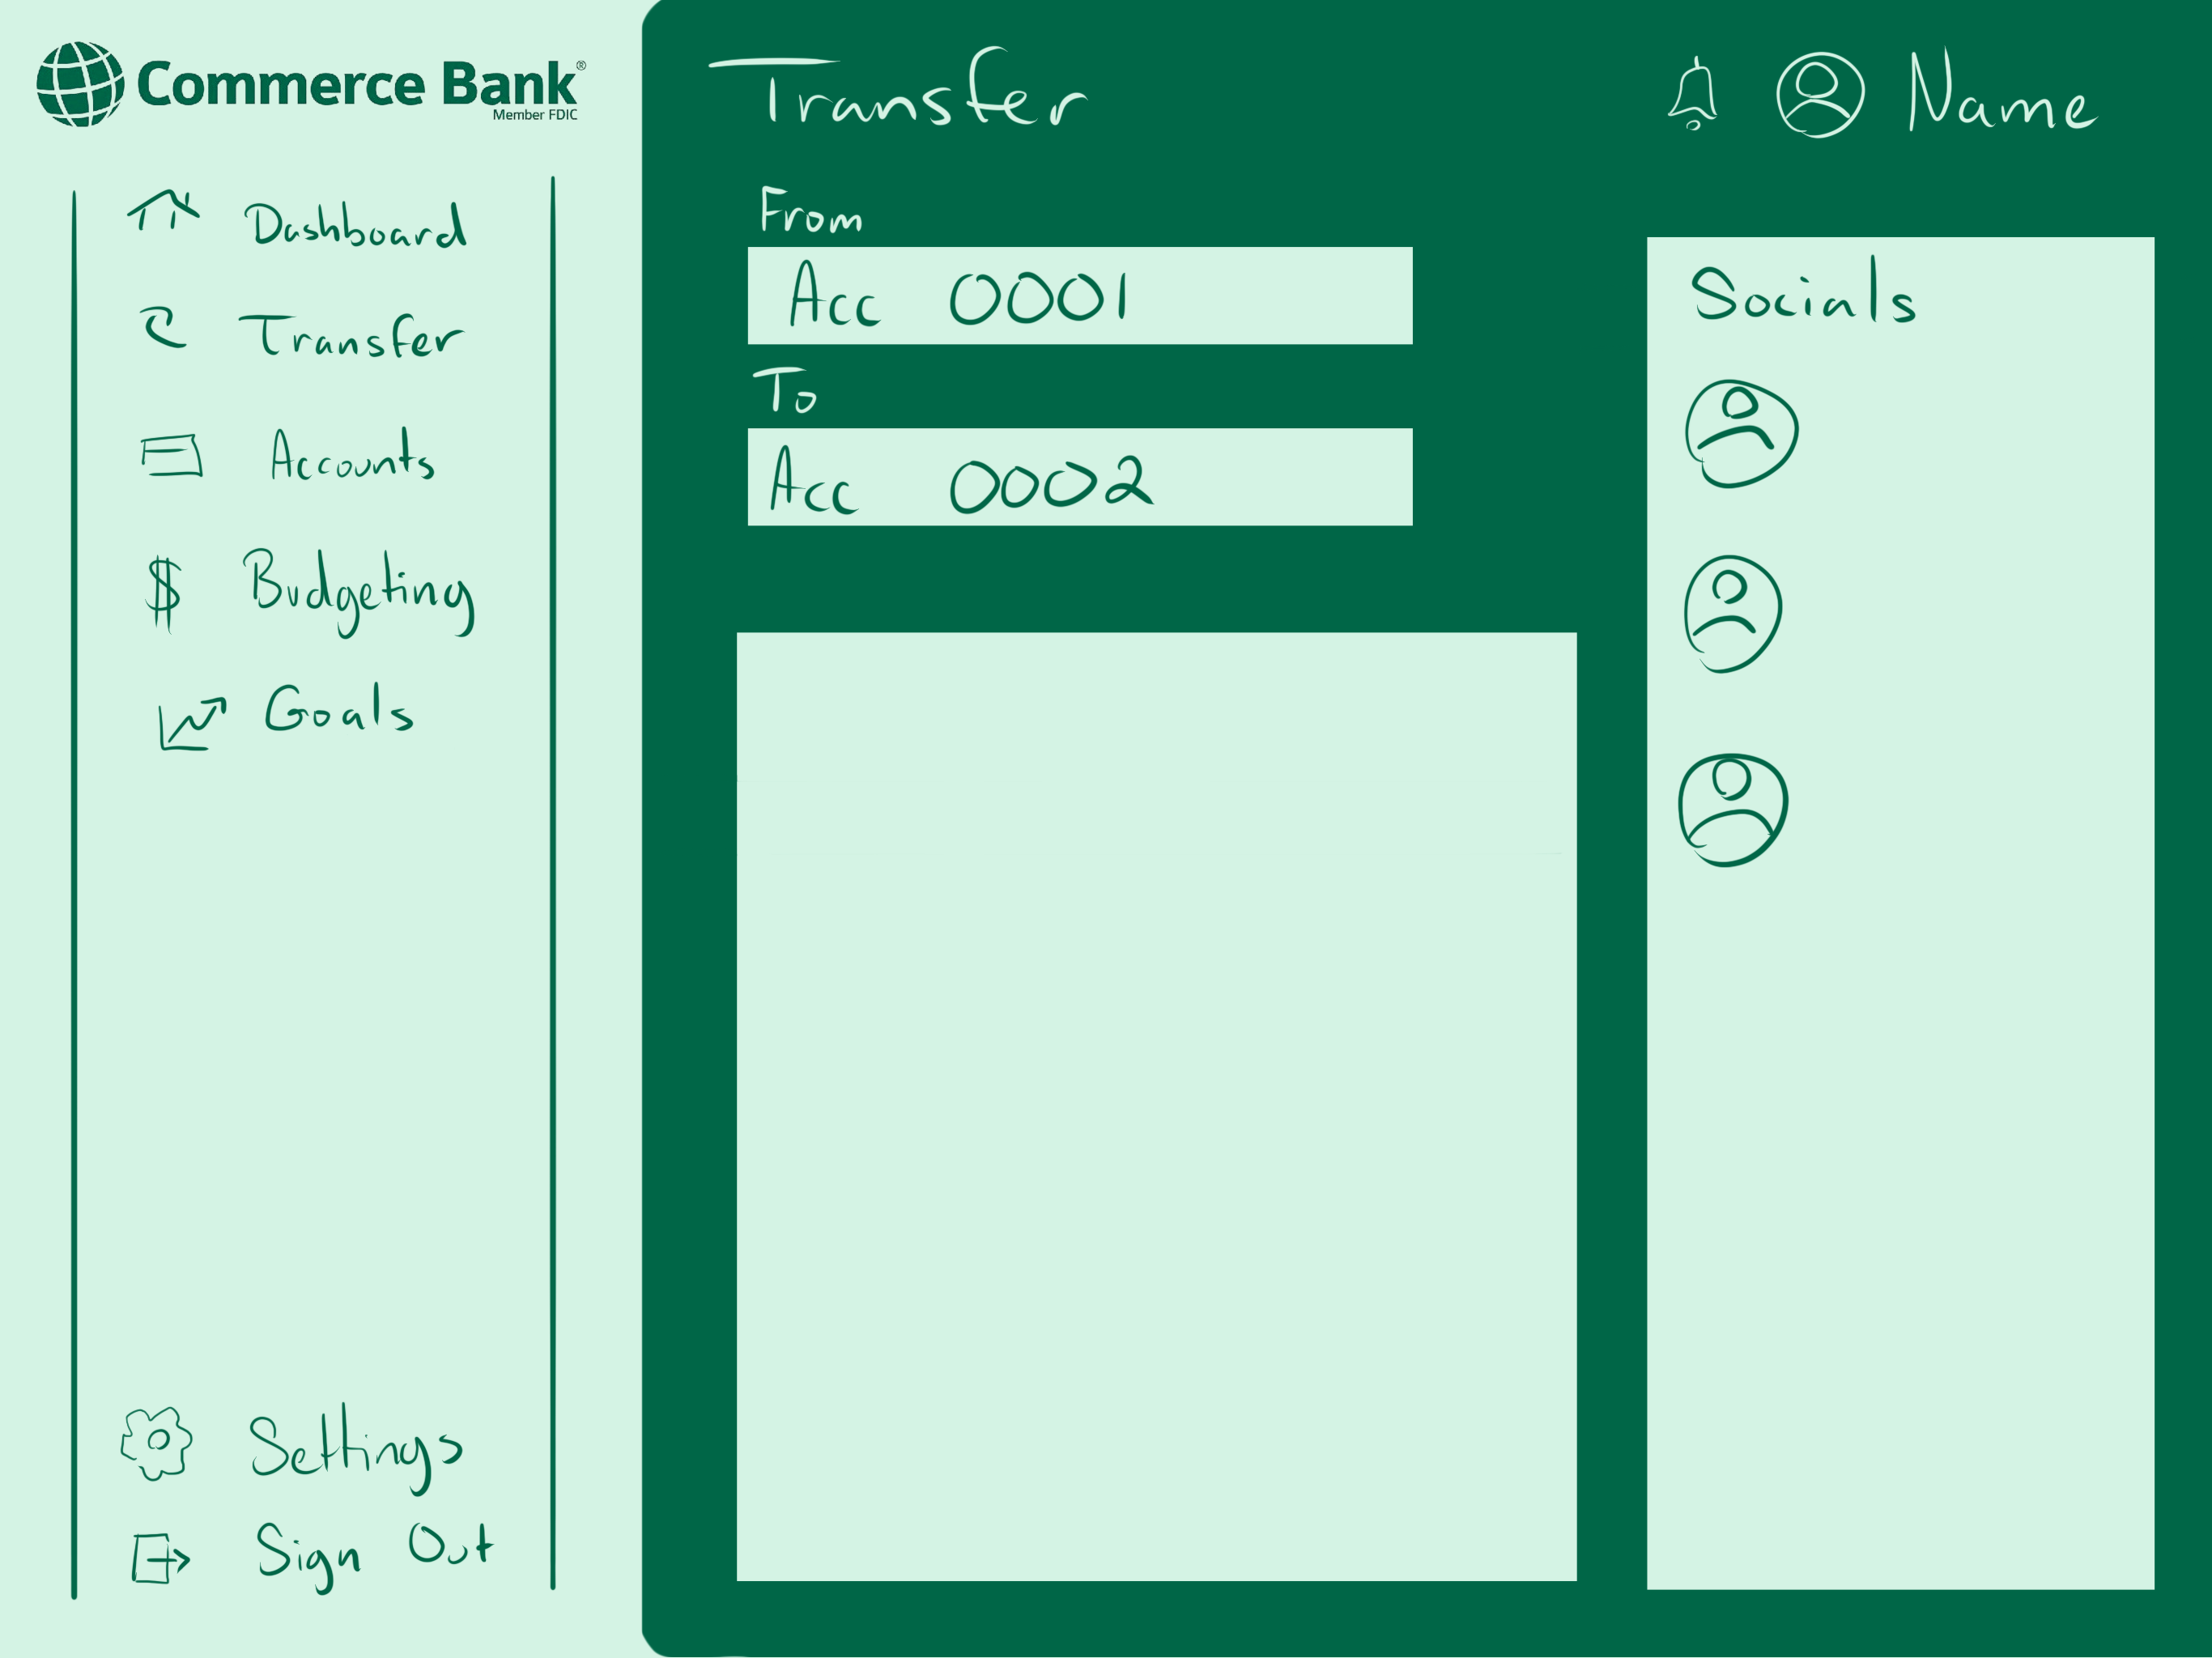 Commerce Bank®
Member FDIC
Dashboard
Transfer
Accounts
$ Budgeting
Goals
Settings
Sign Out
Transfer
Name
From
Acc 0001
To
Acc 0002
Socials